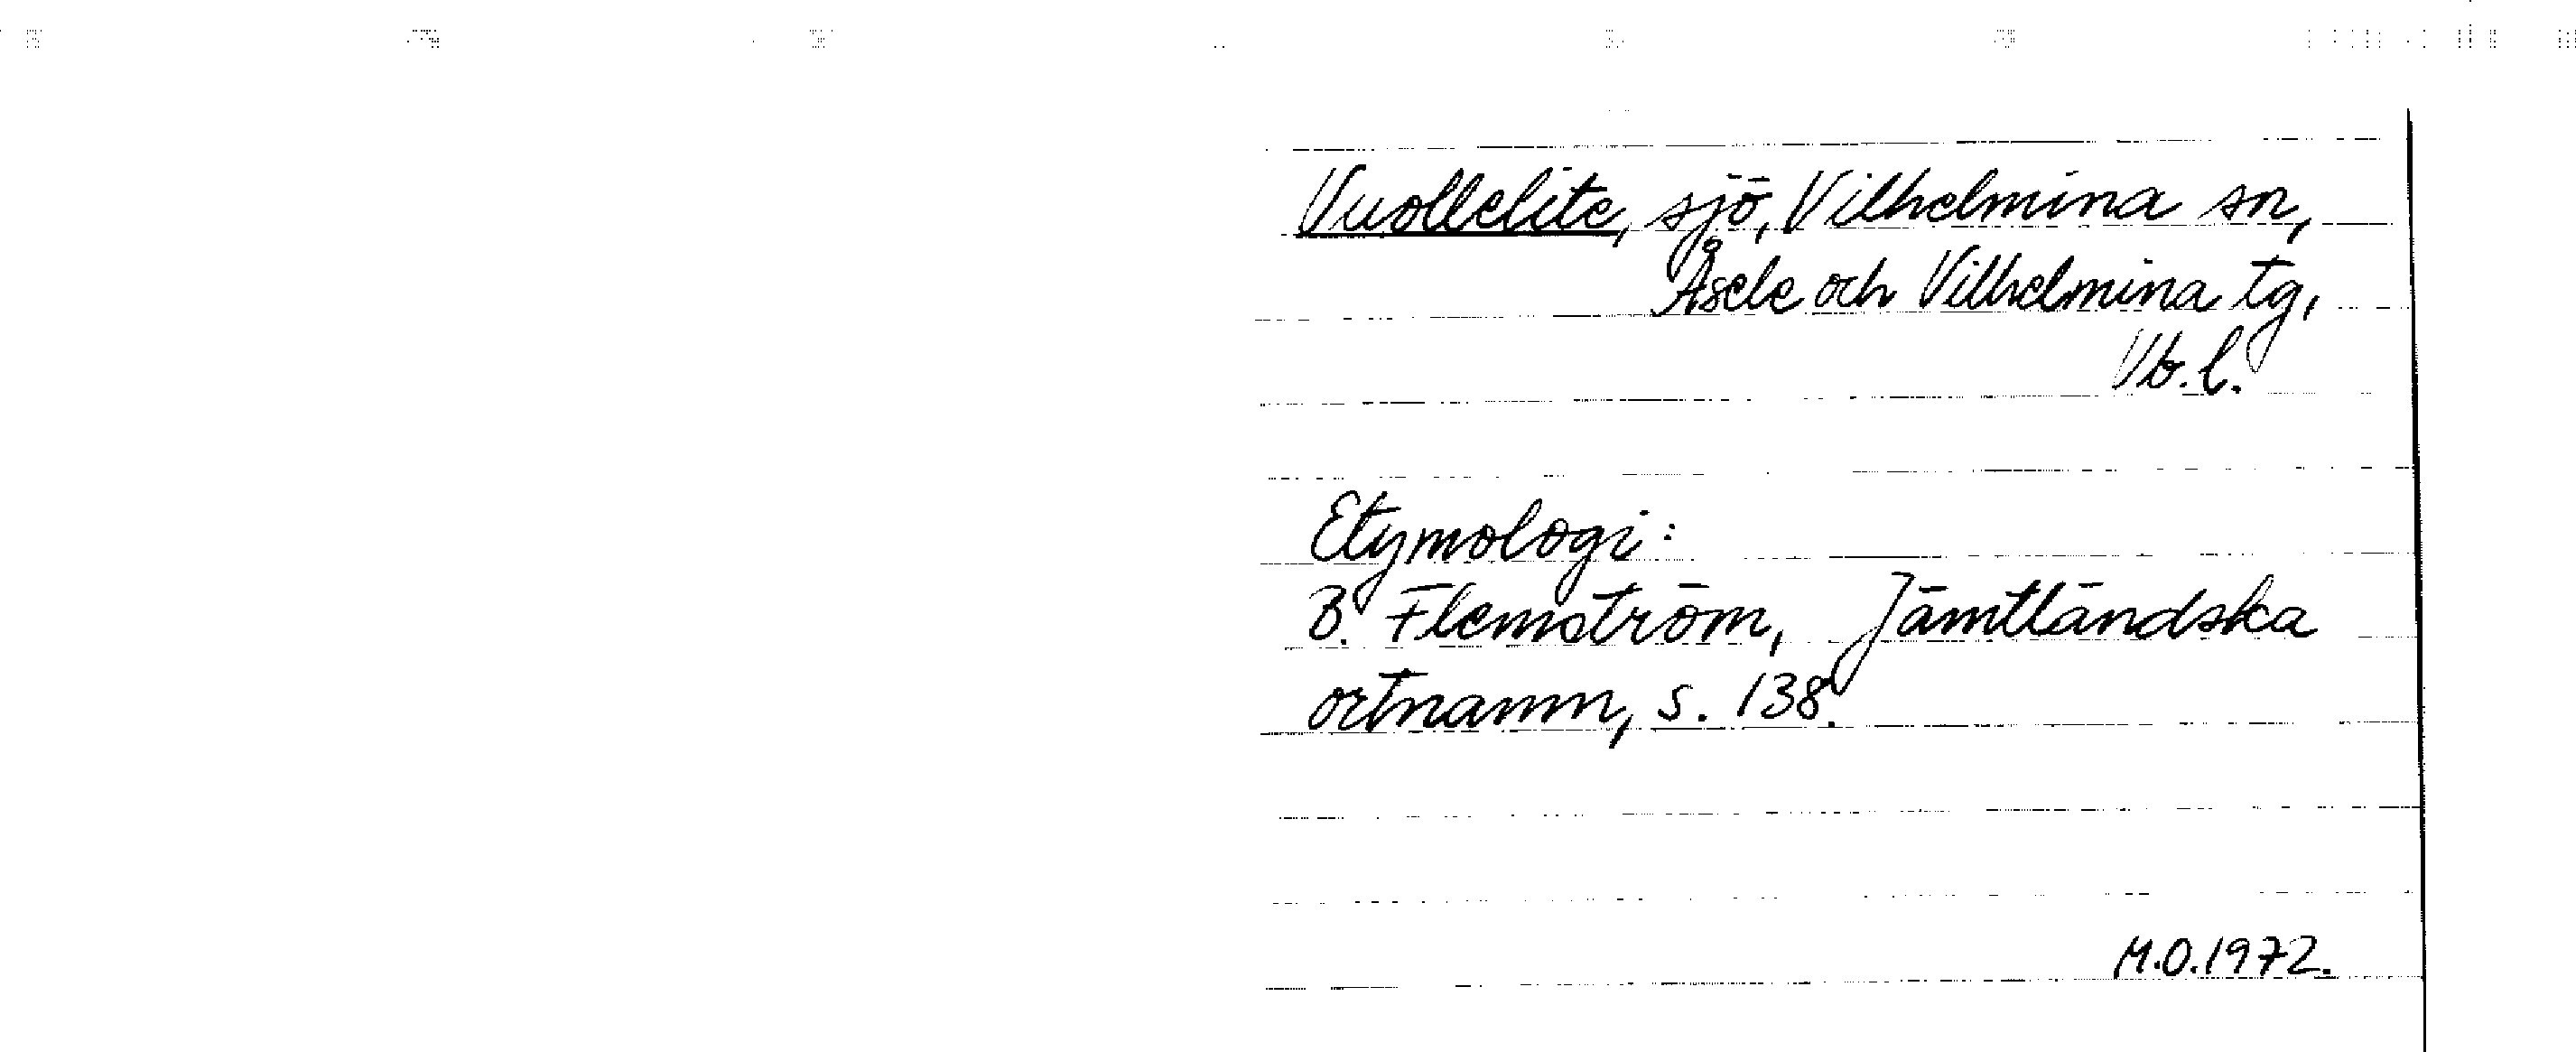 Vuollelite, sjö, Vilhelmina sn,
Åsele och Vilhelmina tg,
Vb.l.
Etymologi:
B. Flemström, Jämtländska
ortnamn, s. 138.
M.O.1972.